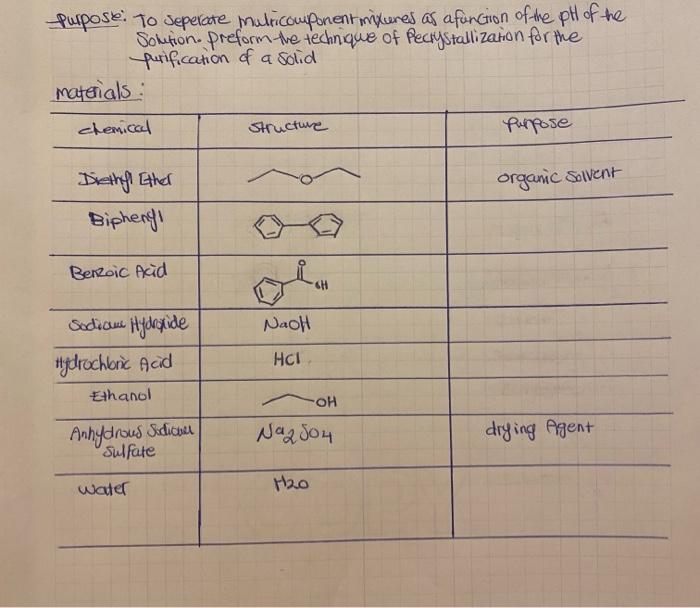 Purpose: To seperate multicomponent mixtures as a function of the pH of the
Solution. preform the technique of Recrystallization for the
purification of a solid
materials:
chemical Structure Purpose
Diethyl Ether O organic solvent
Biphenyl
Benzoic Acid O OH
Sodium Hydroxide NaOH
Hydrochloric Acid HCl
Ethanol OH
Anhydrous Sodium Na2SO4 drying Agent
Sulfate
water H2O